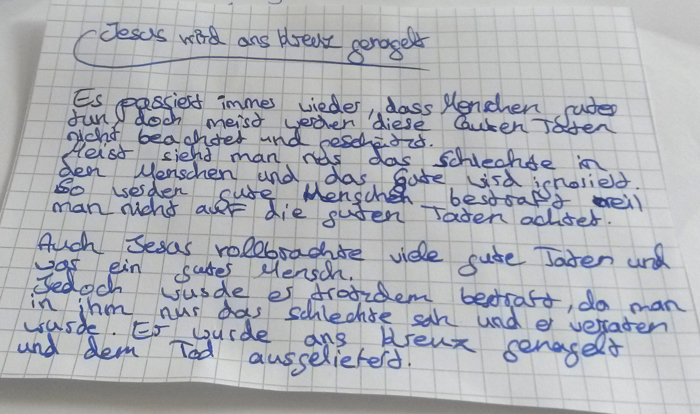 Jesus wird ans Kreuz genagelt
Es passiert immer wieder, dass Menschen gutes
tun doch meist werden diese Guten Taten
nicht beachtet und
Meist sieht man nur das schlechte in
den Menschen und das gute wird ignoriert.
So werden gute Menschen bestraft weil
man nicht auf die guten Taten achtet.
Auch Jesus vollbrachte viele gute Taten und
war ein gutes Mensch.
Jedoch wurde es trotzdem bestraft, da man
in ihm nur das schlechte sah und er verraten
wurde. Er wurde ans Kreuz genagelt
und dem Tod ausgeliefert.